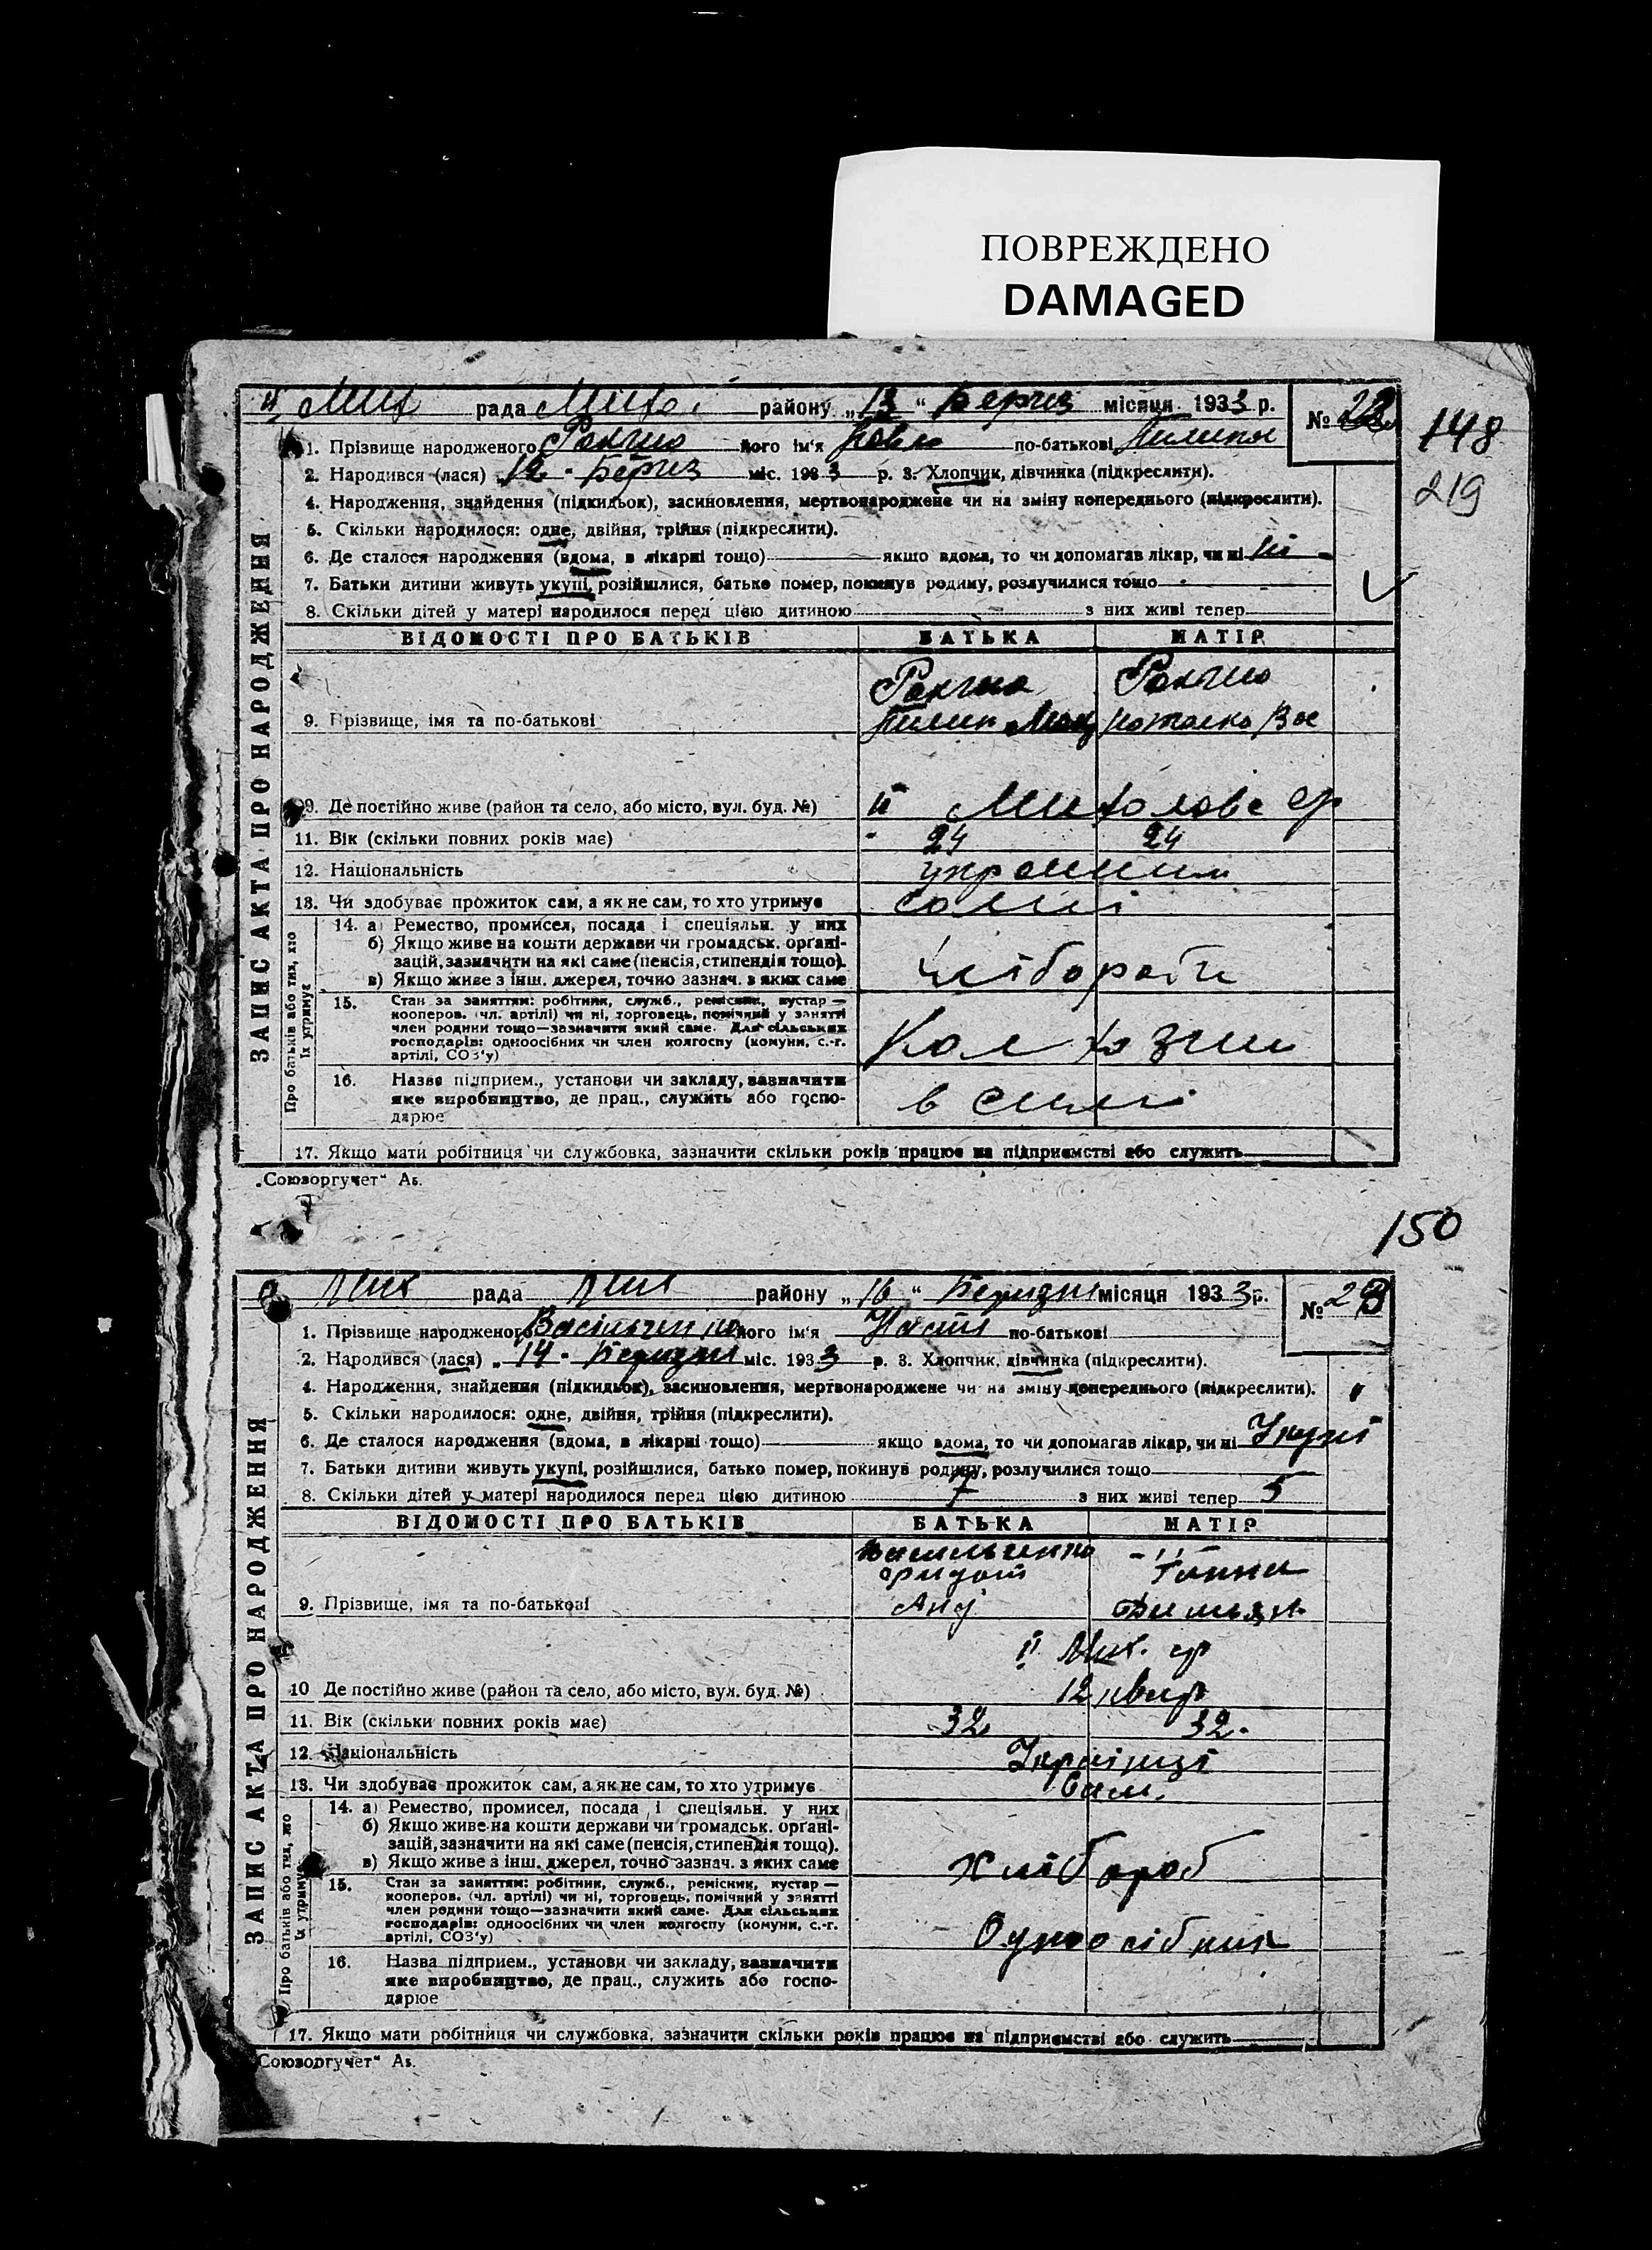 ПОВРЕЖДЕНО
DAMAGED
рада району „13“ місяця 1933 р. № 22
148
219
1. Прізвище народженого його ім'я по-батькові
2. Народився (лася) 12 міс. 1933 р. 3. Хлопчик, дівчинка (підкреслити).
4. Народження, знайдення (підкидьок), засиновлення, мертвонароджене чи на зміну попереднього (підкреслити).
5. Скільки народилося: одне, двійня, трійня (підкреслити).
6. Де сталося народження (вдома, в лікарні тощо) якщо вдома, то чи допомагав лікар, чи ні ні
7. Батьки дитини живуть укупі, розійшлися, батько помер, покинув родину, розлучилися тощо
8. Скільки дітей у матері народилося перед цією дитиною з них живі тепер
ВІДОМОСТІ ПРО БАТЬКІВ БАТЬКА МАТІР
9. Прізвище, імя та по-батькові Пилип
9. Де постійно живе (район та село, або місто, вул. буд. №) II
11. Вік (скільки повних років має) 24 24
12. Національність
13. Чи здобуває прожиток сам, а як не сам, то хто утримує самі
14. а) Ремество, промисел, посада і спеціяльн. у них
б) Якщо живе на кошти держави чи громадськ. органі-
зацій, зазначити на які саме (пенсія, стипендія тощо).
в) Якщо живе з інш. джерел, точно зазнач. з яких саме
15. Стан за заняттям: робітник, служб., ремісник, кустар —
кооперов. (чл. артілі) чи ні, торговець, помічний у занятті
член родини тощо—зазначити який саме. Для сільських
господарів: одноосібних чи член колгоспу (комуни, с.-г.
артілі, СОЗ'у)
16. Назва підприєм., установи чи закладу, зазначити
яке виробництво, де прац., служить або госпо-
дарює
17. Якщо мати робітниця чи службовка, зазначити скільки років працює на підприємстві або служить
ЗАПИС АКТА ПРО НАРОДЖЕННЯ
Про батьків або тих, хто
їх утримує
„Союзоргучет“ Аз.
150
рада району „16“ місяця 1933 р. № 23
1. Прізвище народженого Васільченко його ім'я Настя по-батькові
2. Народився (лася) „14 міс. 1933 р. 3. Хлопчик, дівчинка (підкреслити).
4. Народження, знайдення (підкидьок), засиновлення, мертвонароджене чи на зміну попереднього (підкреслити).
5. Скільки народилося: одне, двійня, трійня (підкреслити).
6. Де сталося народження (вдома, в лікарні тощо) якщо вдома, то чи допомагав лікар, чи ні Укупі
7. Батьки дитини живуть укупі, розійшлися, батько помер, покинув родину, розлучилися тощо
8. Скільки дітей у матері народилося перед цією дитиною 7 з них живі тепер 5
ВІДОМОСТІ ПРО БАТЬКІВ БАТЬКА МАТІР
Васильченко -"-
Ганна
9. Прізвище, імя та по-батькові
II Мих. ср
10 Де постійно живе (район та село, або місто, вул. буд. №) 12 квар
11. Вік (скільки повних років має) 32 32
12. Національність Українці
13. Чи здобуває прожиток сам, а як не сам, то хто утримує Сам.
14. а) Ремество, промисел, посада і спеціяльн. у них
б) Якщо живе на кошти держави чи громадськ. органі-
зацій, зазначити на які саме (пенсія, стипендія тощо).
в) Якщо живе з інш. джерел, точно зазнач. з яких саме хлібороб
15. Стан за заняттям: робітник, служб., ремісник, кустар —
кооперов. (чл. артілі) чи ні, торговець, помічний у занятті
член родини тощо—зазначити який саме. Для сільських
господарів: одноосібних чи член колгоспу (комуни, с.-г.
артілі, СОЗ'у) Одноосібник
16. Назва підприєм., установи чи закладу, зазначити
яке виробництво, де прац., служить або госпо-
дарює
17. Якщо мати робітниця чи службовка, зазначити скільки років працює на підприємстві або служить
ЗАПИС АКТА ПРО НАРОДЖЕННЯ
Про батьків або тих, хто
їх утримує
Союзоргучет“ Аз.